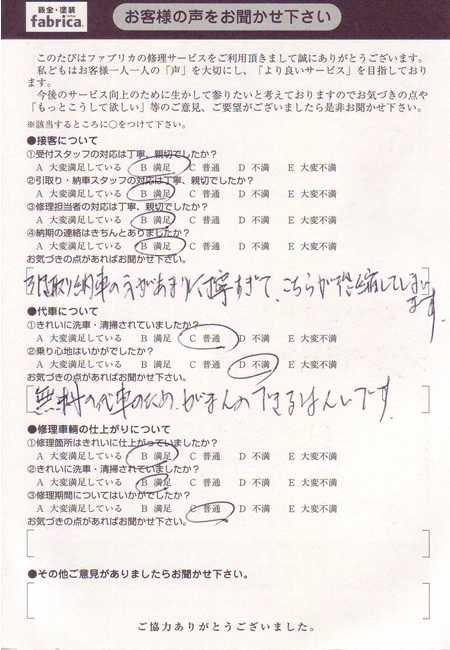 鈑金・塗装
fabrica
お客様の声をお聞かせ下さい
このたびはファブリカの修理サービスをご利用頂きまして誠にありがとうございます。
私どもはお客様一人一人の「声」を大切にし、「より良いサービス」を目指しております。
今後のサービス向上のために生かして参りたいと考えておりますのでお気づきの点や
「もっとこうして欲しい」等のご意見、ご要望がございましたら是非お聞かせ下さい。
※該当するところに○をつけて下さい。
●接客について
①受付スタッフの対応は丁寧、親切でしたか?
A 大変満足している B 満足 C 普通 D 不満 E 大変不満
②引取り・納車スタッフの対応は丁寧、親切でしたか?
A 大変満足している B 満足 C 普通 D 不満 E 大変不満
③修理担当者の対応は丁寧、親切でしたか?
A 大変満足している B 満足 C 普通 D 不満 E 大変不満
④納期の連絡はきちんとありましたか?
A 大変満足している B 満足 C 普通 D 不満 E 大変不満
お気づきの点があればお聞かせ下さい。
引取り納車の方があまり丁寧すぎて、こちらが恐縮してしまい
ます
●代車について
①きれいに洗車・清掃されていましたか?
A 大変満足している B 満足 C 普通 D 不満 E 大変不満
②乗り心地はいかがでしたか?
A 大変満足している B 満足 C 普通 D 不満 E 大変不満
お気づきの点があればお聞かせ下さい。
無料の代車のため、がまんのできるはんいです。
●修理車輌の仕上がりについて
①修理箇所はきれいに仕上がっていましたか?
A 大変満足している B 満足 C 普通 D 不満 E 大変不満
②きれいに洗車・清掃されていましたか?
A 大変満足している B 満足 C 普通 D 不満 E 大変不満
③修理期間についてはいかがでしたか?
A 大変満足している B 満足 C 普通 D 不満 E 大変不満
お気づきの点があればお聞かせ下さい。
●その他ご意見がありましたらお聞かせ下さい。
ご協力ありがとうございました。